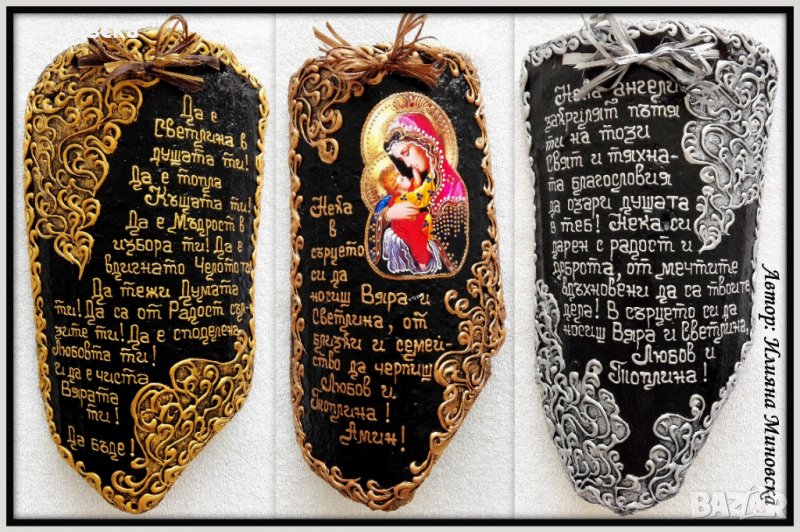 Да е
Светлина в
душата ти!
Да е топла
Къщата ти!
Да е Мъдрост в
избора ти! Да е
вдигнато Челото ти!
Да тежи Думата
ти! Да са от Радост съл-
зите ти! Да е споделена
Любовта ти!
и да е чиста
Вярата
ти!
Да бъде!
Нека
в
сърцето
си да
носиш Вяра и
Светлина, от
близки и семей-
ство да черпиш
Любов и
Топлина!
Амин!
Нека ангели
закрилят пътя
ти на този
свят и тяхна-
та благословия
да озари душата
в теб! Нека си
дарен с радост и
доброта, от мечтите
вдъхновени да са твоите
дела! В сърцето си да
носиш Вяра и Светлина,
Любов и
Топлина!
Автор: Илияна Миновска
BAZAR